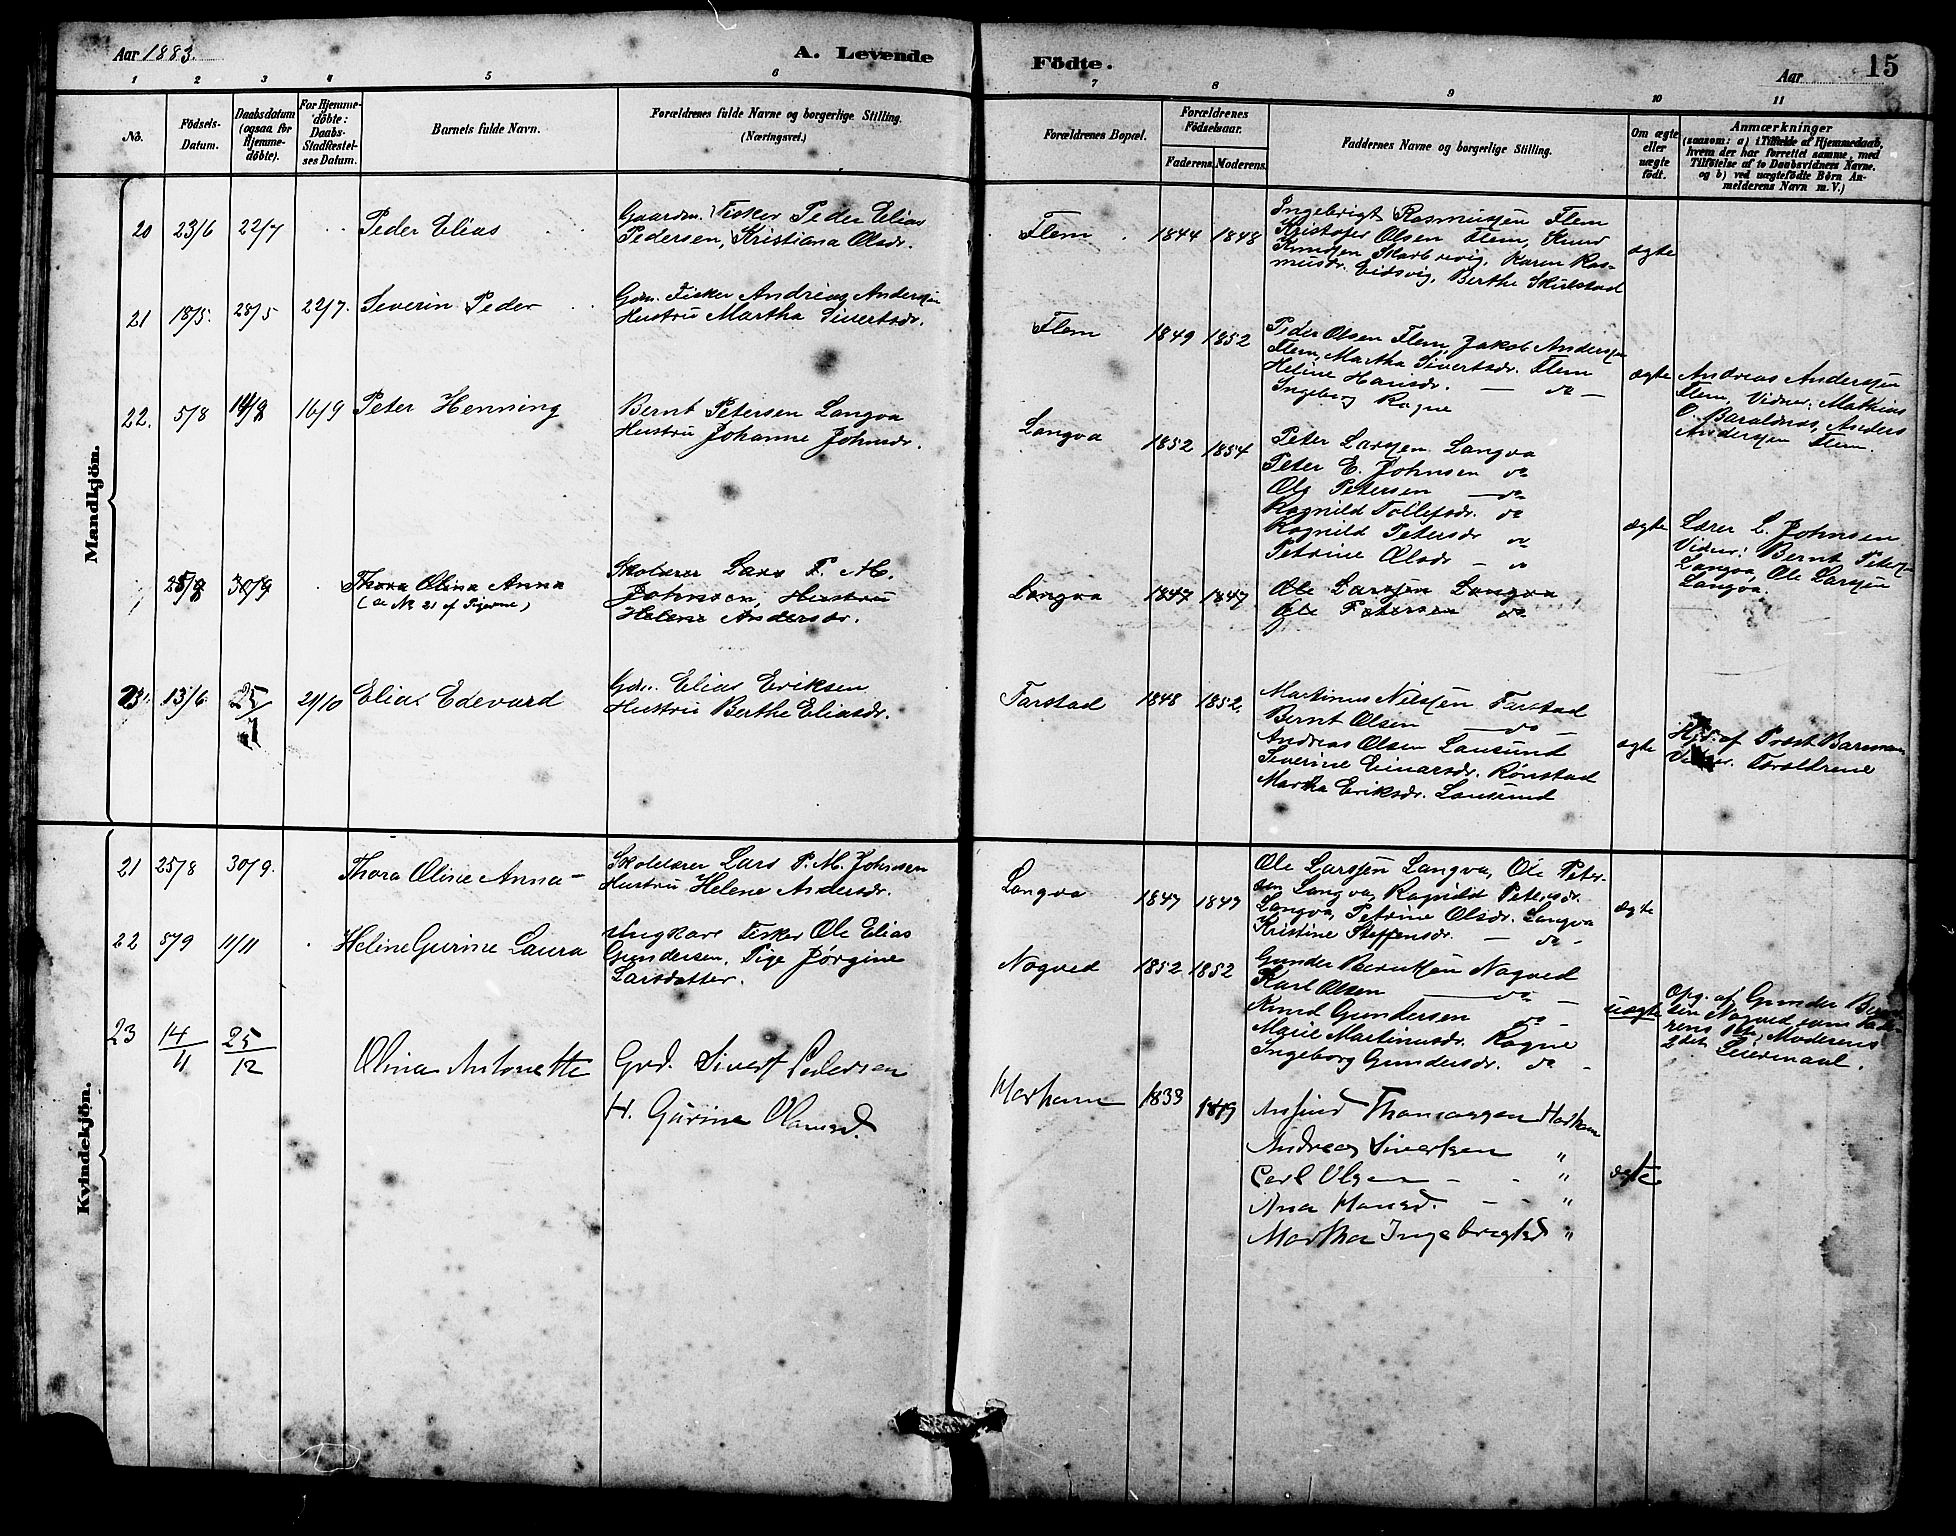 Aar 1883.
A. Levende
Födte.
Aar
15
1 2 3 4 5 6 7 8 9 10 11
No.
Födsels-
Datum.
Daabsdatum
(ogsaa for
Hjemme-
döbte).
For Hjemme-
döbte:
Daabs-
Stadfæstel-
ses Datum.
Barnets fulde Navn.
Forældrenes fulde Navne og borgerlige Stilling.
(Næringsvei.)
Forældrenes Bopæl.
Forældrenes
Födselsaar.
Faderens. Moderens.
Faddernes Navne og borgerlige Stilling.
Om ægte
eller
uægte
födt.
Anmærkninger
(saasom: a) i Tilfælde af Hjemmedaab,
hvem der har forrettet samme, med
Tilföielse af to Daabsvidners Navne,
og b) ved uægtefödte Börn An-
melderens Navn m. V.)
Mandkjön.
20 23/6 22/7 Peder Elias
Gaardm. Fisker Peder Elias
Pedersen, Kristiana Olsdr.
Flem 1844 1848
Ingebrigt Rasmussen Flem
Kristofer Olsen Flem, Knud
Knudsen Skarbrevig, Karen Ras-
musdr. Eidsvig, Berthe Skulstad
ægte
21 18/5 28/5 22/7. Severin Peder
Gdm. Fisker Andreas Andersen
Hustru Martha Sivertsdr.
Flem 1849 1852
Peder Olsen Flem, Jakob Andersen
Flem, Martha Sivertsdr. Flem
Heline Hansdr. — do —
Ingeborg Rogne
ægte
Andreas Andersen
Flem, Vidner: Mathias
O. Baraldnes, Anders
Andersen Flem.
22. 5/8 16/9 Peter Henning
Bernt Petersen Langva
Hustru Johanne Johnsdr.
Langva 1852 1854
Peter Larssen Langva
Peter E. Johnsen do
Ole Petersen — do
Ragnild Tollefsdr. do
Ragnild Petersdr do
Petrine Olsdr — do
ægte
Lærer L. Johnsen
Vidner: Bernt Petersen
Langva, Ole Larssen
Langva.
25/8 30/9 Thora Olina Anna
(se No 21 af Pigerne)
Skolelærer Lars P. M.
Johnsen, Hustru
Helene Andersdr.
Langva 1847 1847
Ole Larssen Langva
Ole Petersen do
23. 13/6 25/7 21/10 Elias Edevard
Gdm. Elias Eriksen
Hustru Berthe Eliasdr.
Farstad 1848 1852.
Martinus Nilssen Farstad
Bernt Olsen — do —
Andreas Olsen Lausund
Severine Einarsdr. Rönstad
Martha Eriksdr. Lausund
ægte
Hjd. af Præst Barman
Vidner. Forældrene
Kvindekjön.
21 25/8 30/9. Thora Oline Anna —
Skolelærer Lars P. M. Johnsen
Hustru Helene Andersdr.
Langva 1847 1847
Ole Larssen Langva, Ole Peter-
sen Langva, Ragnild Petersdr.
Langva, Petrine Olsdr. Langva
Kristine Steffensdr. — do —
ægte
22 8/9 11/11 Heline Gurine Laura
Ungkarl Fisker Ole Elias
Gundersen, Pige Jørgine
Larsdatter.
Nogved 1852. 1852
Gunder Berntsen Nogved
Karl Olsen — do —
Knud Gundersen do —
Marie Martinusdr. Rogne
Ingeborg Gundersdr. do —
uægte
Opg. af Gunder Bernt-
sen Nogved som Fade-
rens 1ste, Moderens
2det Leiermaal.
23 14/11 25/12 Olina Antonette
Grd. Sivert Pedersen
H. Gurine Olansd.
Harham 1833 1849
Anfind Thomassen Harham
Andreas Sivertsen "
Carl Olsen — - "
Ana Hansd. - - "
Martha Ingebrigtsd "
ægte